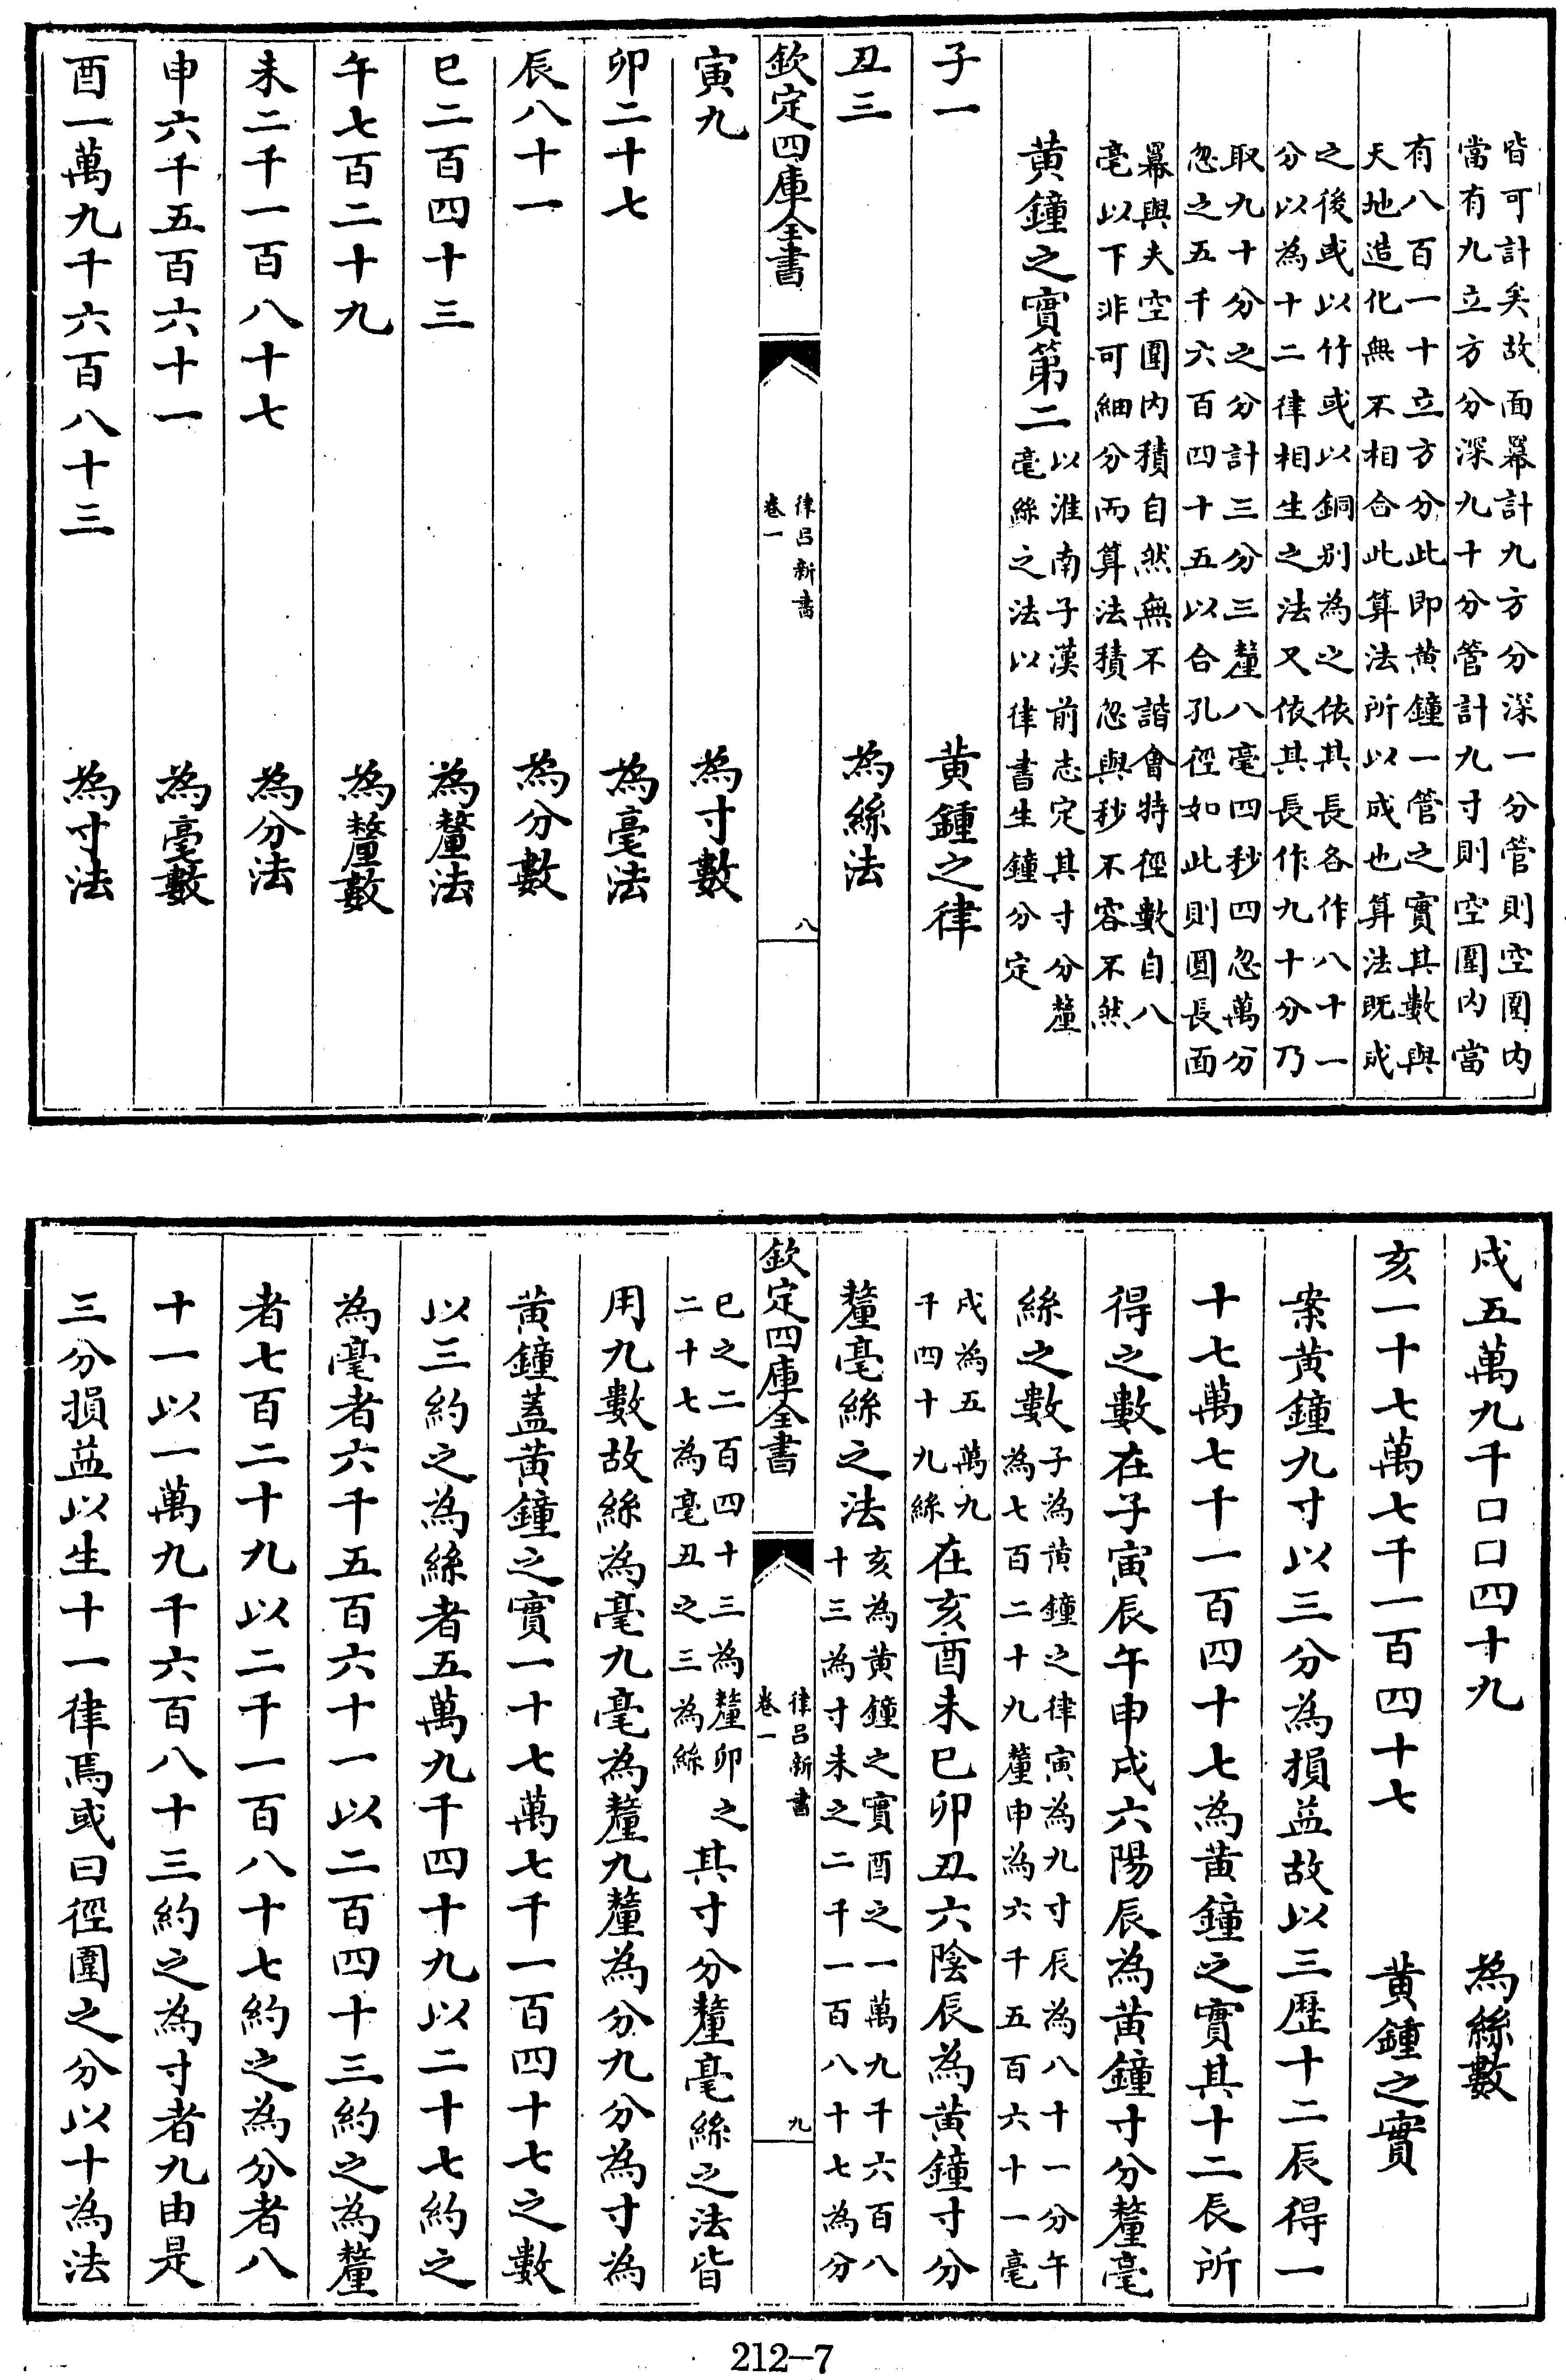 皆可計矣故面冪計九方分深一分管則空圍内
當有九立方分深九十分管計九寸則空圍内當
有八百一十立方分此即黄鐘一管之實其數與
天地造化無不相合此算法所以成也算法既成
之後或以竹或以銅别為之依其長各作八十一
分以為十二律相生之法又依其長作九十分乃
取九十分之分計三分三釐八毫四秒四忽萬分
忽之五千六百四十五以合孔徑如此則圓長面
冪與夫空圍内積自然無不諧會特徑數自八
毫以下非可細分而算法積忽與秒不容不然
黄鐘之實第二
以淮南子漢前志定其寸分釐
毫絲之法以律書生鐘分定
子一 黄鍾之律
丑三 為絲法
欽定四庫全書
律呂新書
卷一
八
寅九 為寸數
卯二十七 為毫法
辰八十一 為分數
巳二百四十三 為釐法
午七百二十九 為釐數
未二千一百八十七 為分法
申六千五百六十一 為毫數
酉一萬九千六百八十三 為寸法
戍五萬九千口口四十九 為絲數
亥一十七萬七千一百四十七 黄鍾之實
案黄鐘九寸以三分為損益故以三歴十二辰得一
十七萬七千一百四十七為黄鐘之實其十二辰所
得之數在子寅辰午申戍六陽辰為黄鐘寸分釐毫
絲之數
子為黄鐘之律寅為九寸辰為八十一分午
為七百二十九釐申為六千五百六十一毫
戍為五萬九
千四十九絲
在亥酉未巳卯丑六陰辰為黄鐘寸分
釐毫絲之法
亥為黄鐘之實酉之一萬九千六百八
十三為寸未之二千一百八十七為分
欽定四庫全書
律呂新書
卷一
九
巳之二百四十三為釐卯之
二十七為毫丑之三為絲
其寸分釐毫絲之法皆
用九數故絲為毫九毫為釐九釐為分九分為寸為
黄鐘蓋黄鐘之實一十七萬七千一百四十七之數
以三約之為絲者五萬九千四十九以二十七約之
為毫者六千五百六十一以二百四十三約之為釐
者七百二十九以二千一百八十七約之為分者八
十一以一萬九千六百八十三約之為寸者九由是
三分損益以生十一律焉或曰徑圍之分以十為法
212-7